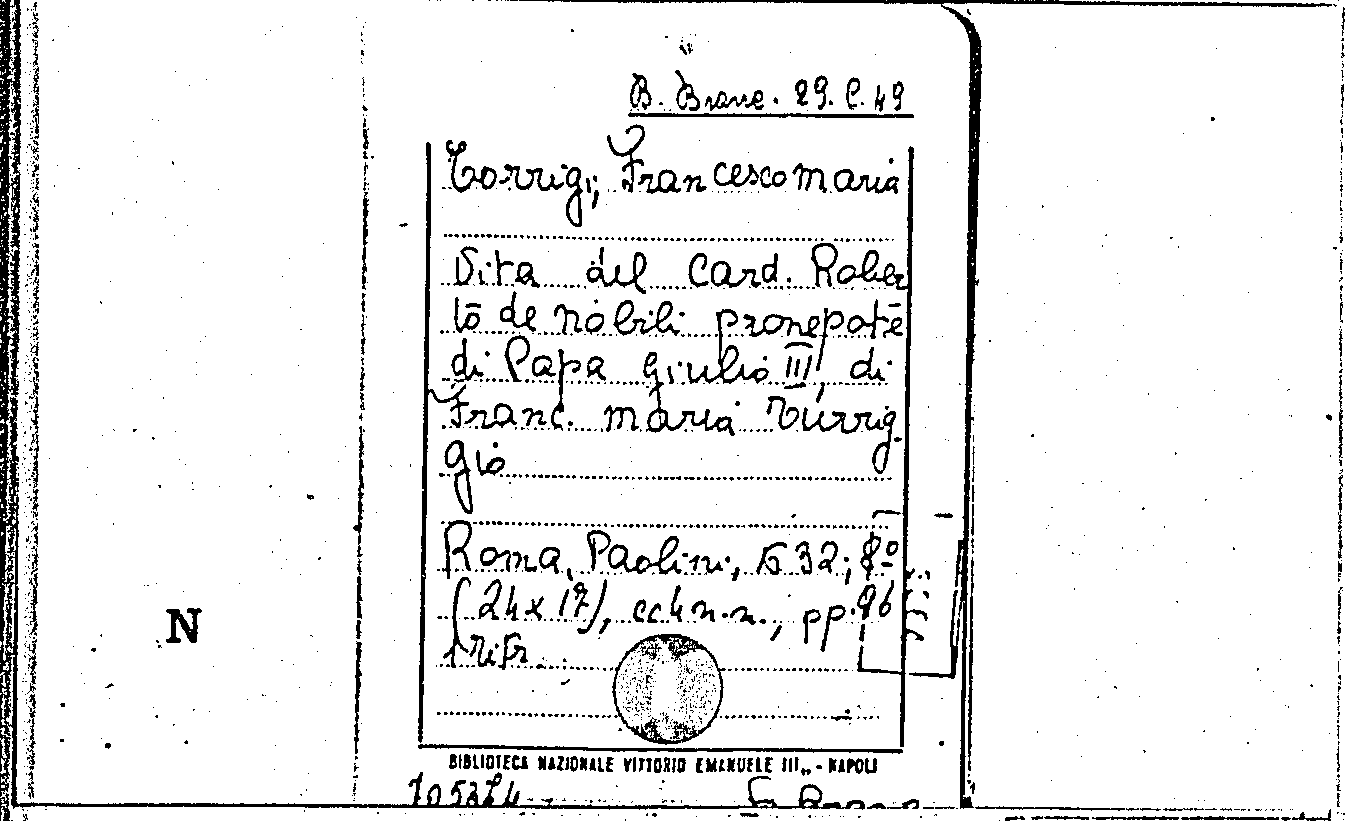 B. Branc. 29. C. 49
Torrigi, Francesco maria
Vita del Card. Rober
to de nobili pronepote
di Papa Giulio III, di
Franc. maria Turrig-
gio
Roma, Paolini, 1632; 8º
(24x17), cc4 n.n., pp. 96
N
BIBLIOTECA NAZIONALE VITTORIO EMANUELE III„ - NAPOLI